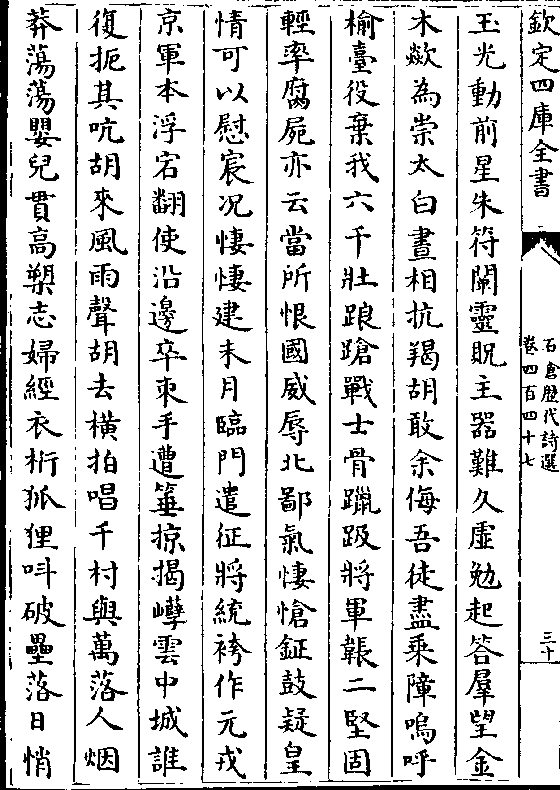 欽定四庫全書
石倉歷代詩選
卷四百四十七
三十
玉光動前星朱符闡靈貺主器難久虛勉起答羣望金
木歘為祟太白晝相抗羯胡敢余侮吾徒盡乘障嗚呼
榆臺役棄我六千壯踉蹌戰士骨躐踏將軍韔二堅固
輕率腐屍亦云當所恨國威辱北鄙氣悽愴鉦鼓疑皇
情可以慰宸况悽悽建未月臨門遣征將統袴作元戎
京軍本浮宕翻使沿邊卒束手遭箠掠揭孽雲中城誰
復扼其吭胡來風雨聲胡去橫拍唱千村與萬落人烟
莽蕩蕩嬰兒貫高槊志婦經衣桁狐狸呌破壘落日悄